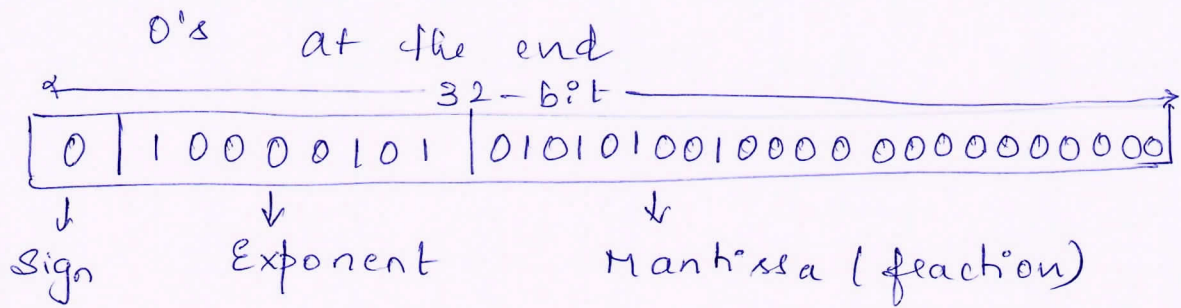 0's at the end
32-bit
0 10000101 01010100100000000000000
Sign Exponent Mantissa (fraction)